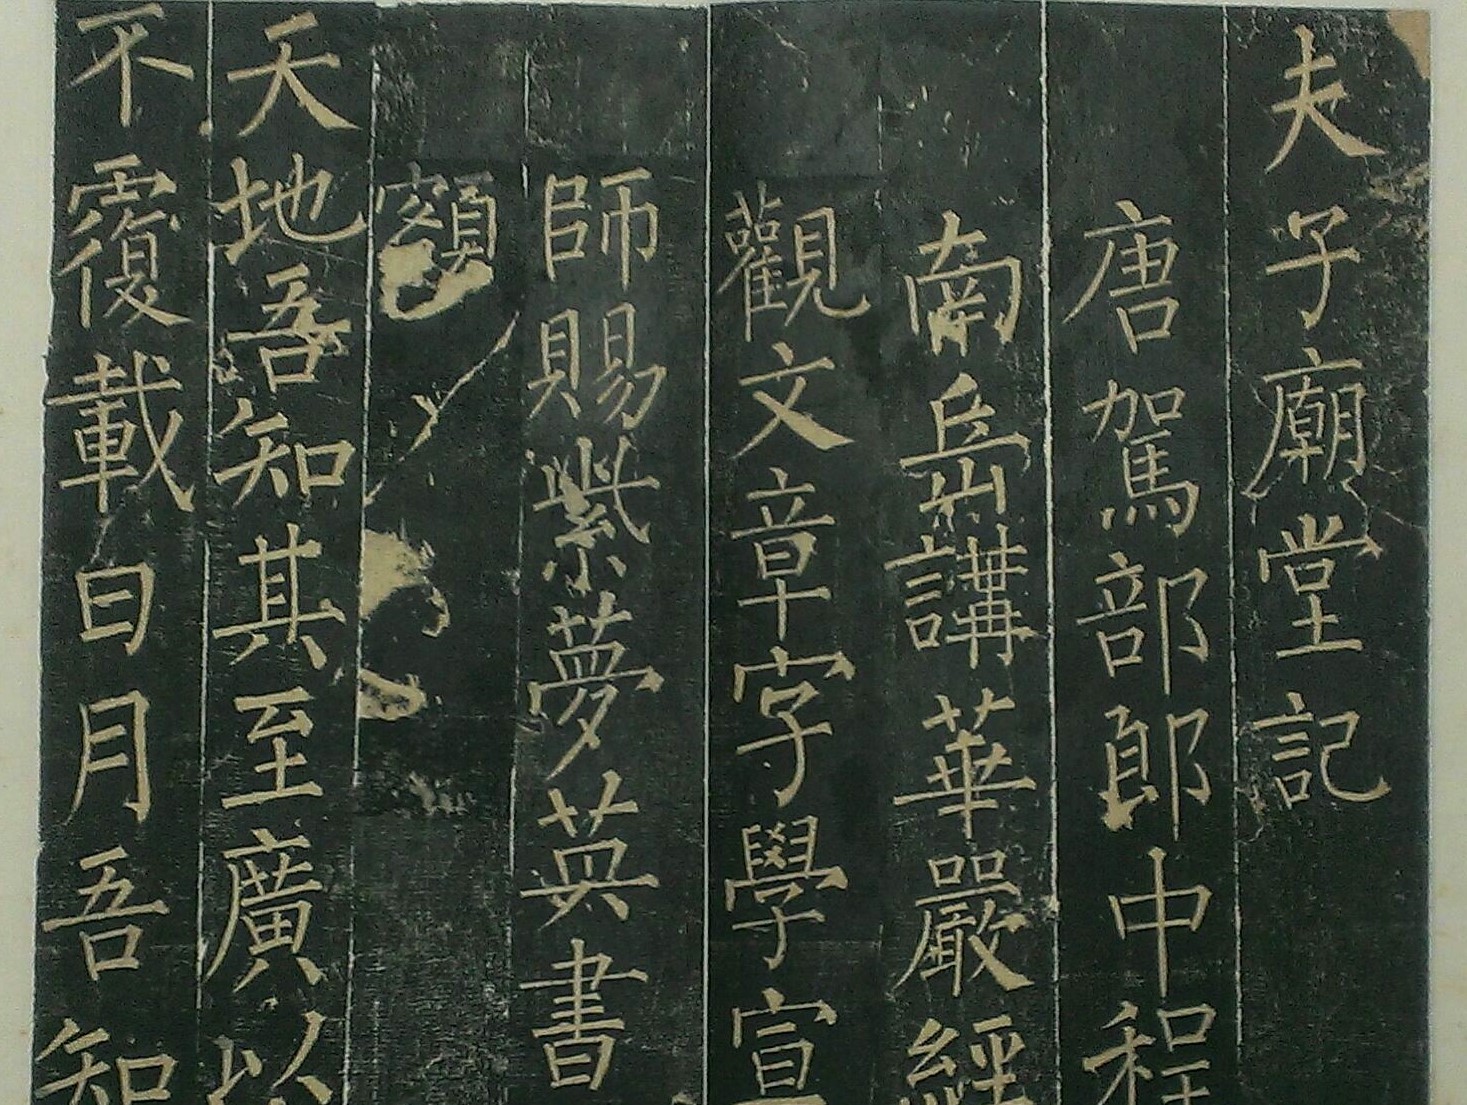 夫子廟堂記
唐駕部郎中程
南岳講華嚴經
觀文章字學宣
師賜紫夢英書
額
天地吾知其至廣以
不覆載日月吾知